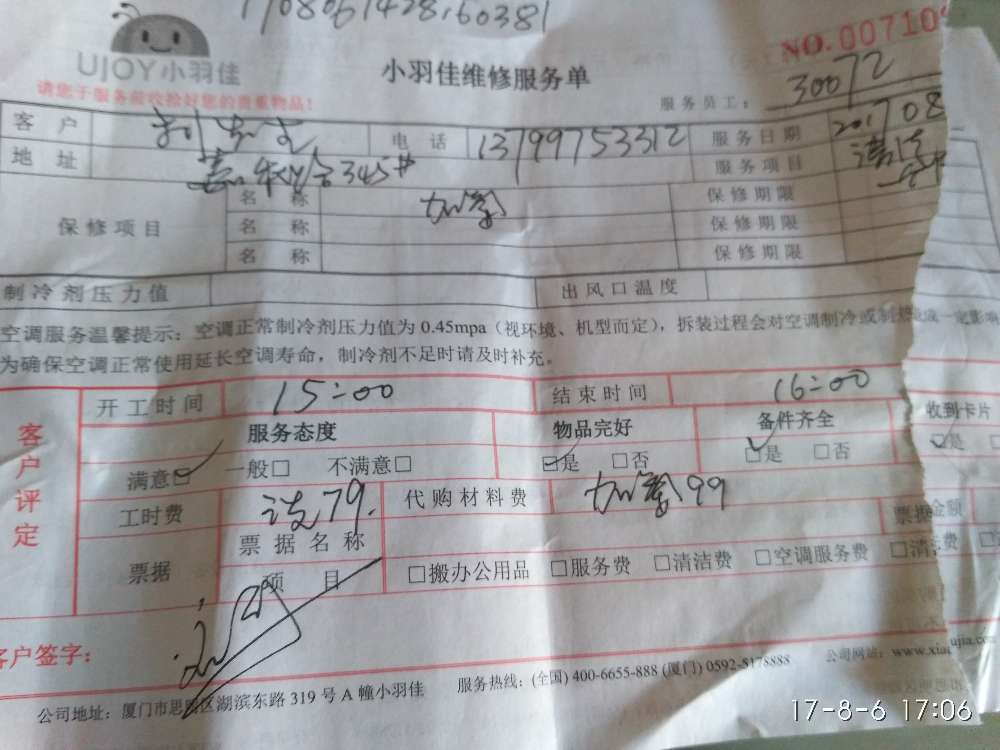 1708061428160381
NO.007109
UJOY小羽佳
小羽佳维修服务单
请您于服务前收拾好您的贵重物品!
服务员工: 30072
客户 电话 13799753312 服务日期 201708
地址 345# 服务项目 清洗
保修项目 名称 加氟 保修期限
名称 保修期限
名称 保修期限
制冷剂压力值 出风口温度
空调服务温馨提示:空调正常制冷剂压力值为0.45mpa(视环境、机型而定),拆装过程会对空调制冷或制热造成一定影响
为确保空调正常使用延长空调寿命,制冷剂不足时请及时补充。
客户评定
开工时间 15:00 结束时间 16:00
服务态度 物品完好 备件齐全 收到卡片
满意☑ 一般□ 不满意□ ☑是 □否 ☑是 □否 ☑是
工时费 洗79. 代购材料费 加氟99 票据金额
票据 票据名称
项目 □搬办公用品 □服务费 □清洁费 □空调服务费 □清洗费
客户签字:
公司地址:厦门市思明区湖滨东路319号A幢小羽佳 服务热线:(全国)400-6655-888(厦门)0592-5178888 公司网站:www.xiaoyujia.com
17-8-6 17:06